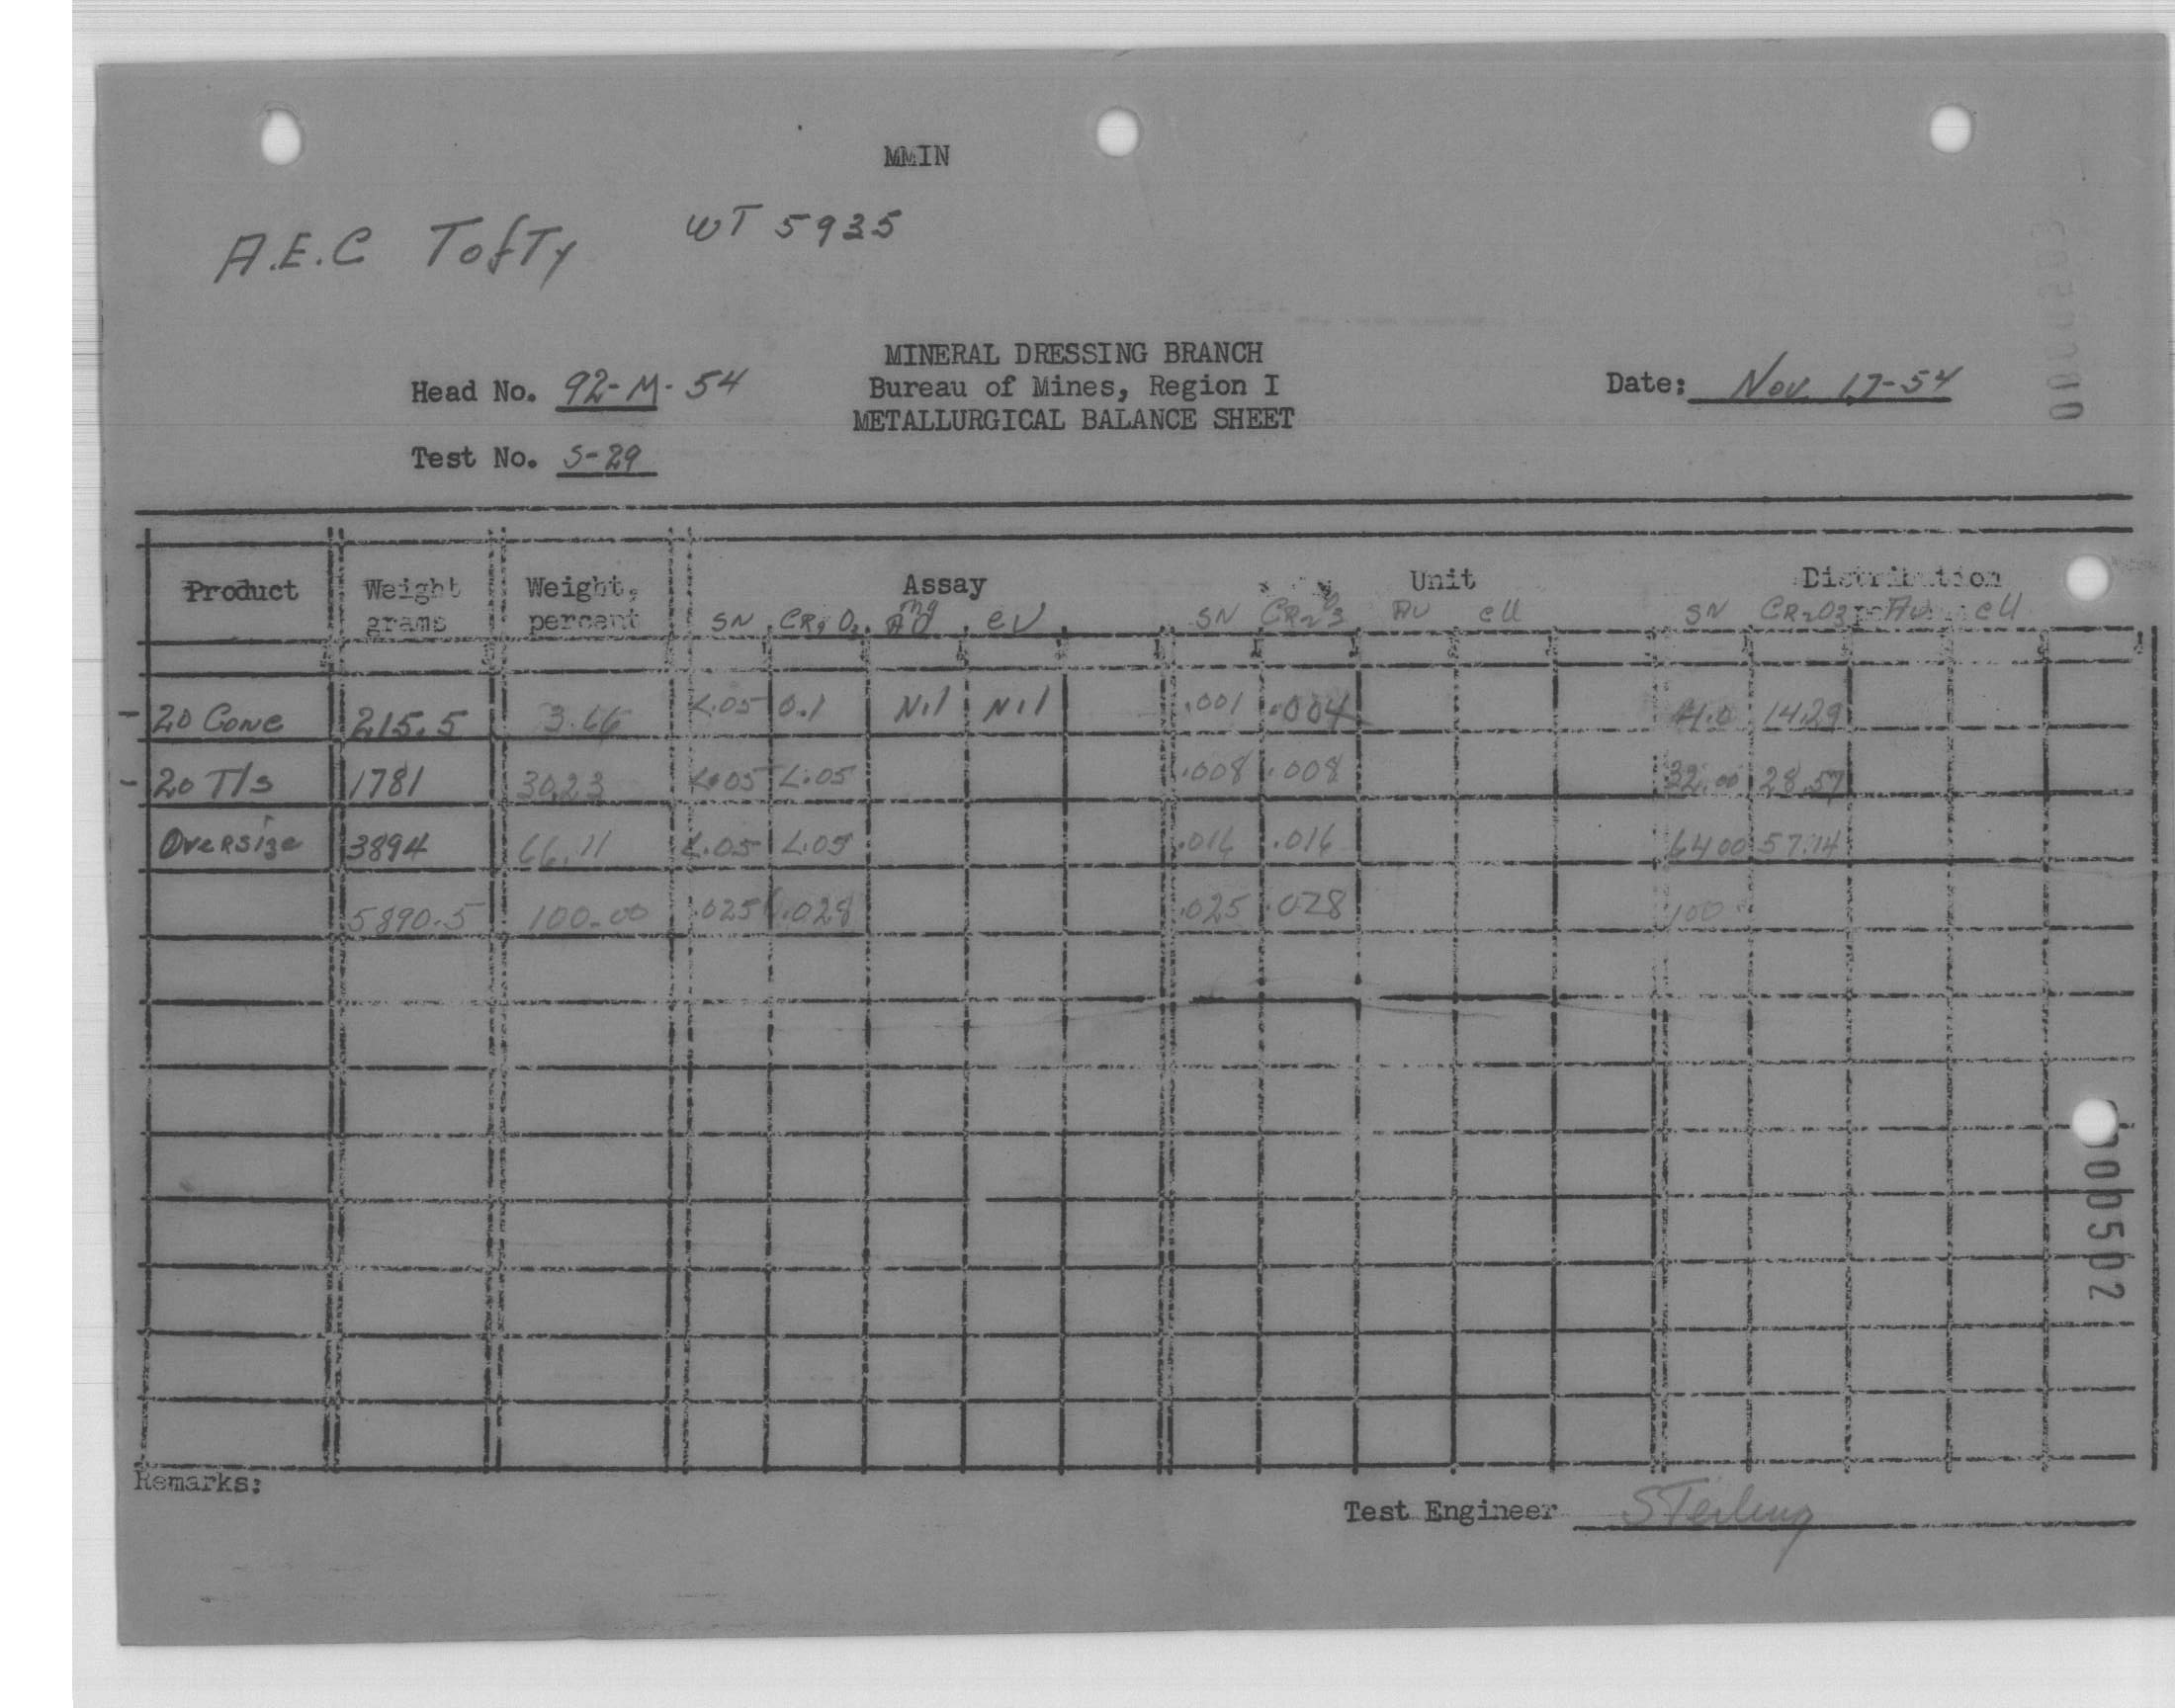 MMIN
A.E.C Tofty WT 5935
MINERAL DRESSING BRANCH
Head No. 92-M-54 Bureau of Mines, Region I Date: Nov. 17-54
METALLURGICAL BALANCE SHEET
Test No. S-29
Product Weight grams Weight, percent Assay Unit Distribution
SN CR2O3 mg AU eU SN CR2O3 AU eU SN CR2O3 AU eU
-20 Conc 215.5 3.66 <.05 0.1 Nil Nil .001 .004 4.0 14.29
-20 T/s 1781 30.23 <.05 <.05 .008 .008 32.00 28.57
Oversize 3894 66.11 <.05 <.05 .016 .016 64 00 57.14
5890.5 100.00 .025 .028 .025 .028 100
000502
Remarks:
Test Engineer Sterling